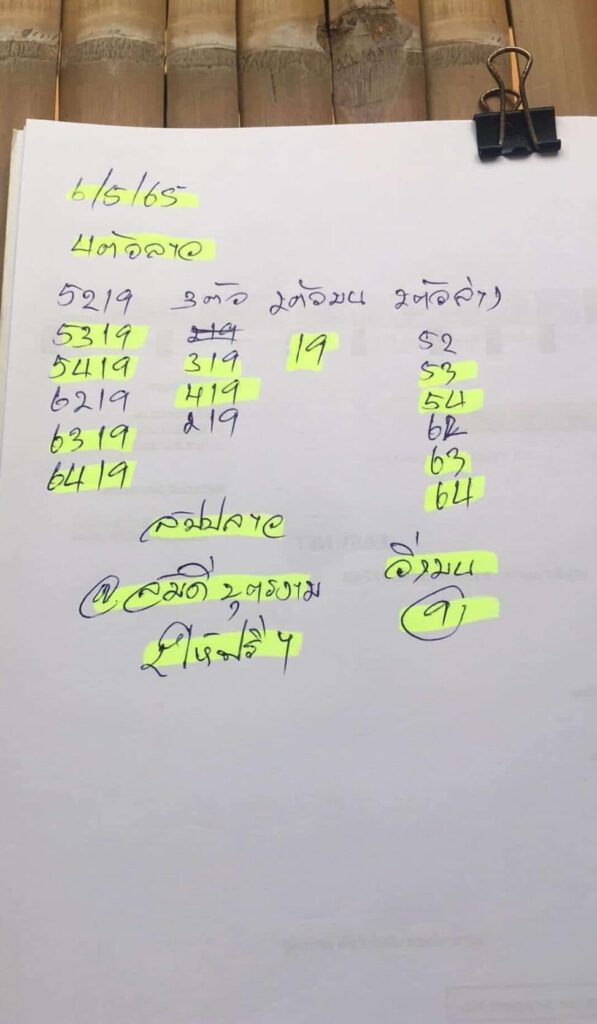 6/5/65
4ตัวลาว
5219 3ตัว 2ตัวบน 2ตัวล่าง
5319 219 19 52
5419 319 53
6219 419 54
6319 219 62
6419 63
64
ลาว
วิ่งบน
@ สมดี บุตรงาม
9
ให้ฟรี ๆ